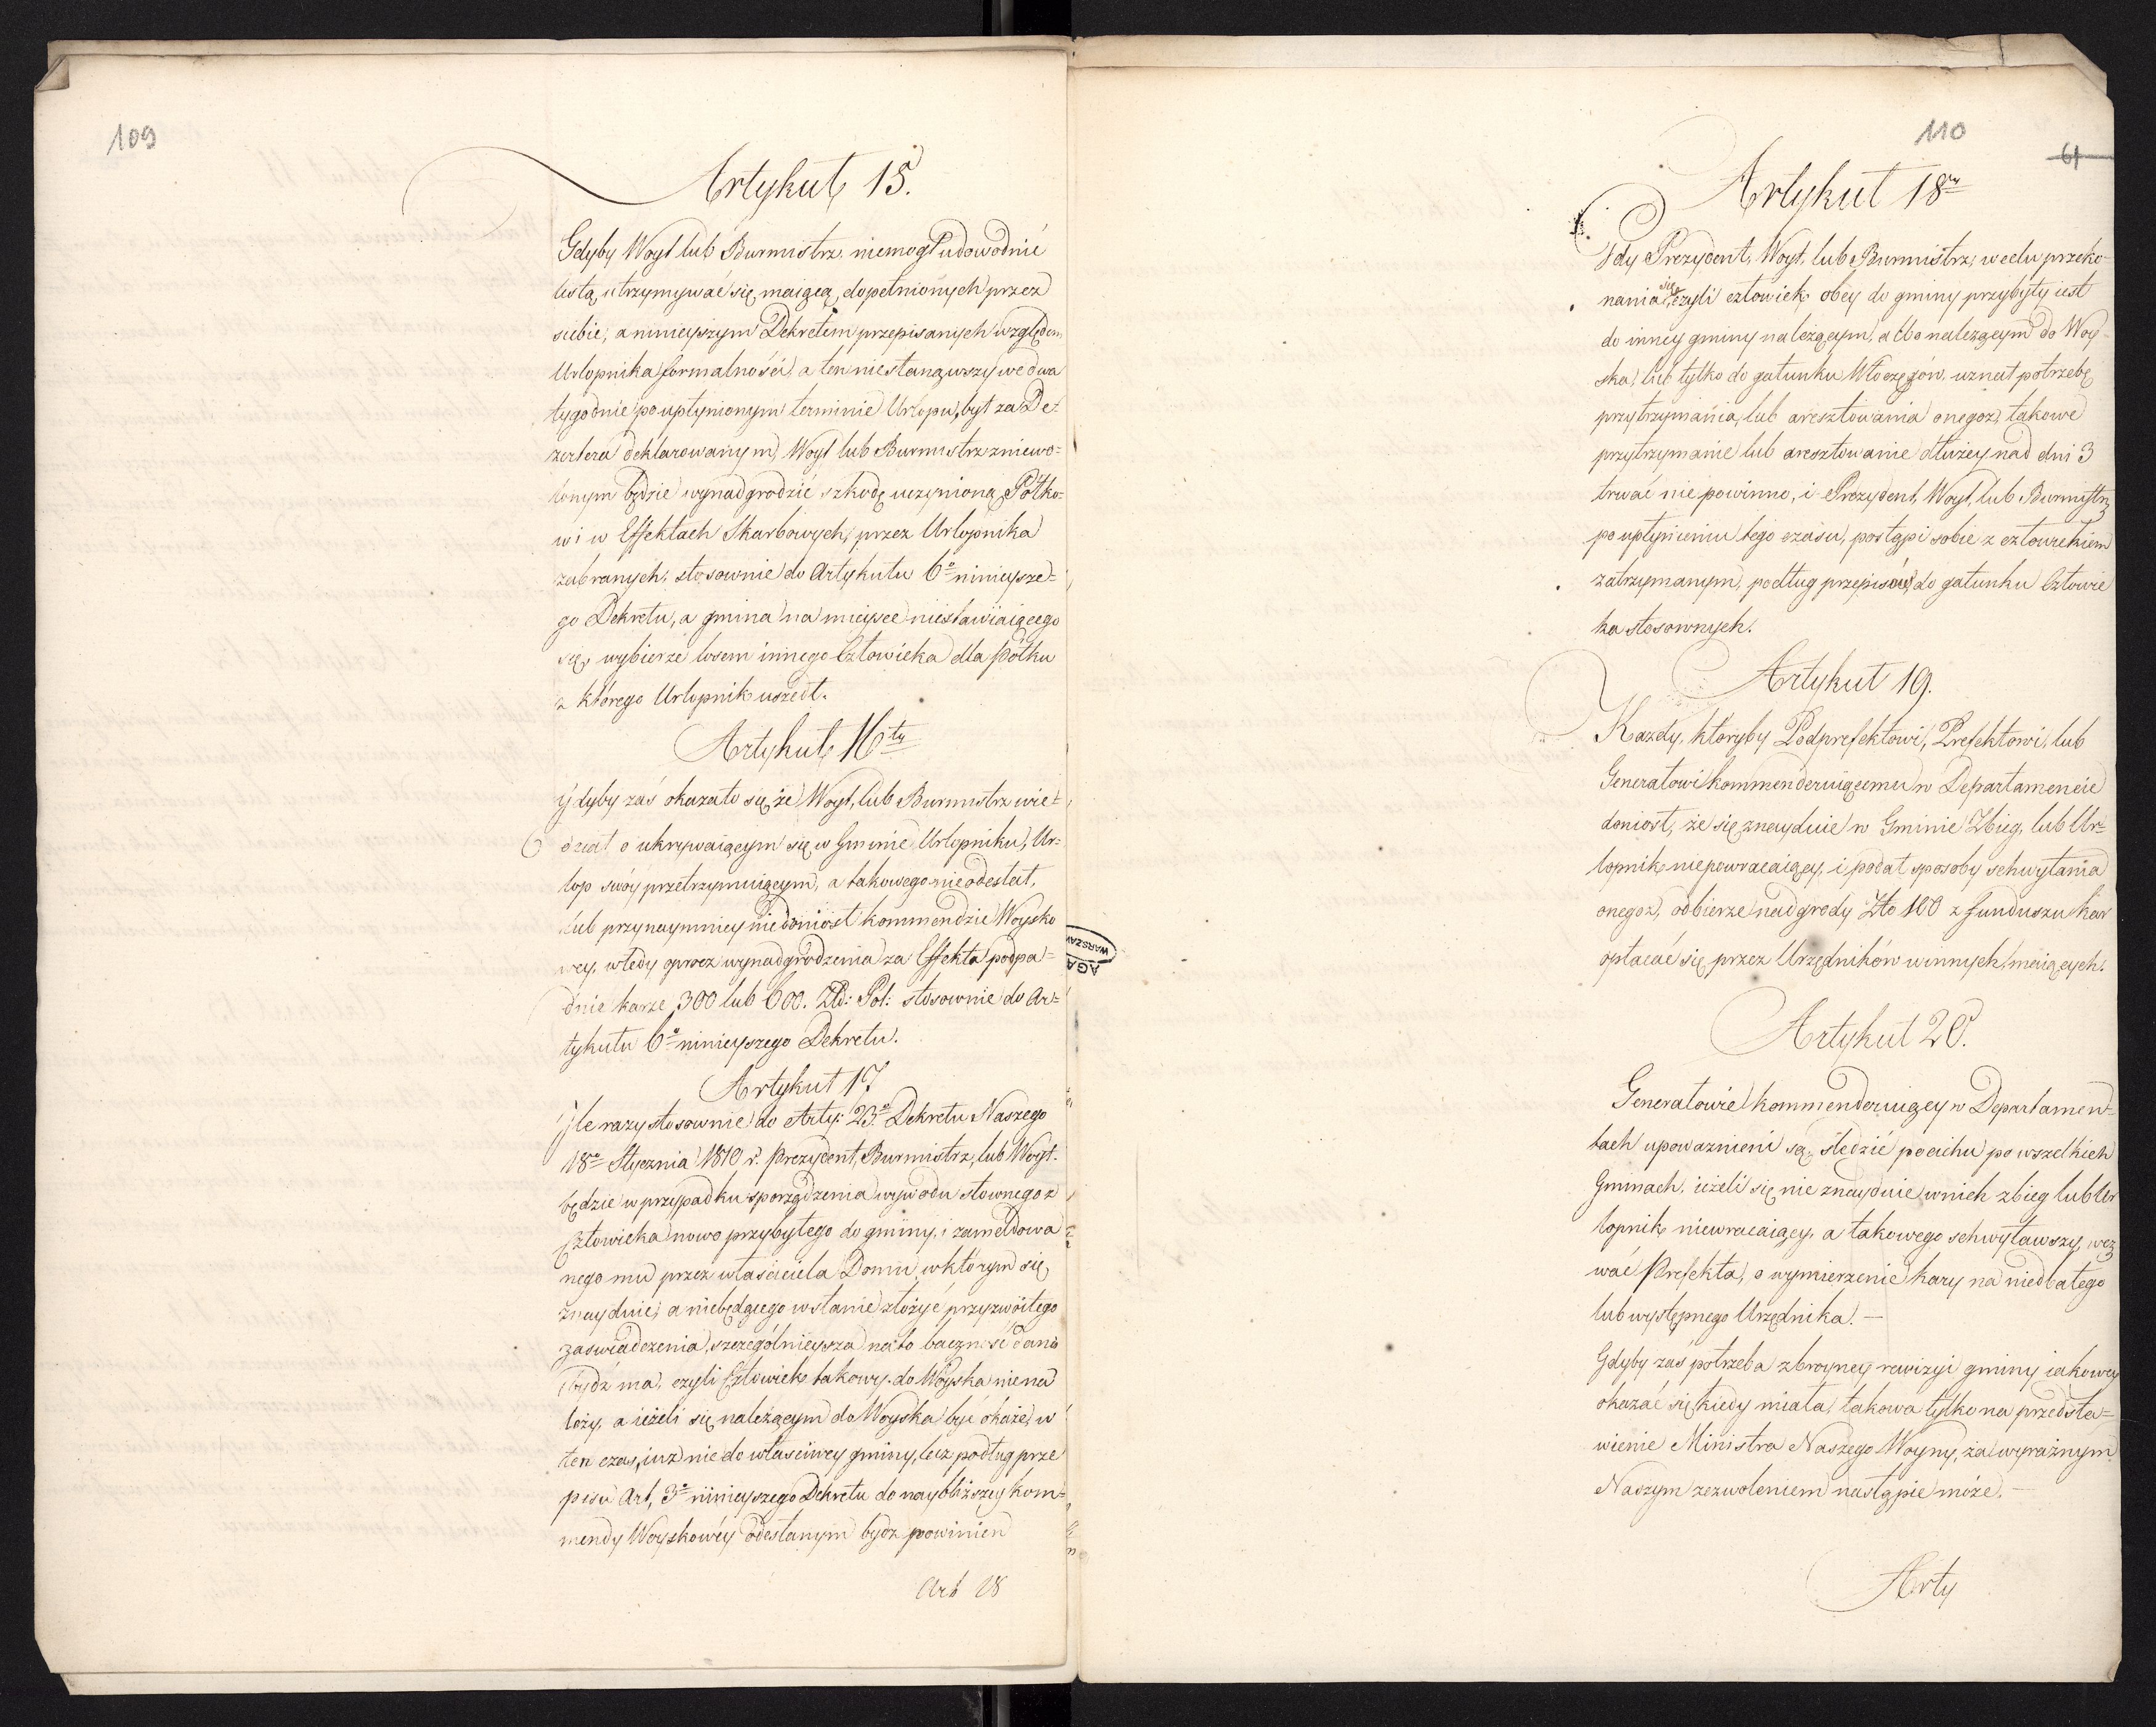 109
Artykuł 15.
Gdyby Woyt lub Burmistrz niemogł udowodnić
listą utrzymywać się maiącą, dopełnionych przez
siebie, a ninieyszym Dekretem przepisanych względem
Urlopnika formalności, a ten niestanąwszy we dwa
tygodnie po upłynionym terminie Urlopu, był za De=
zertera deklarowanym, Woyt lub Burmistrz zniewo=
lonym będzie wynadgrodzić szkodę uczynioną Półko=
wi w Effektach Skarbowych, przez Urlopnika
zabranych, stosownie do Artykułu 6º ninieysze=
go Dekretu, a gmina na mieysce niestawiaiącego
się, wybierze losem innego Człowieka dla Półku
z którego Urlopnik uszedł.
Artykuł 16ty
Gdyby zaś okazało się że Woyt, lub Burmistrz wie=
dział o ukrywaiącym się w Gminie Urlopniku, Ur=
lop swóy przetrzymuiącym, a takowego nieodesłał,
lub przynaymniey niedoniósł kommendzie Woysko
wey, wtedy oprocz wynadgrodzenia za Effekta podpa=
dnie karze 300 lub 600. Zło: Pol: stosownie do Ar=
tykułu 6º ninieyszego Dekretu.
Artykuł 17
Jle razy stosownie do Arty: 23º Dekretu Naszego
18º Stycznia 1810 r. Prezydent, Burmistrz, lub Woyt
będzie w przypadku sporządzenia wywodu słownego z
Człowieka nowo przybyłego do gminy, i zameldowa=
nego mu przez właściciela Domu w którym się
znayduie, a niebędącego w stanie złożyć przyzwoitego
zaswiadczenia, szczególnieysza na to baczność dana
bydź ma, czyli Człowiek takowy do Woyska niena
leży, a ieżeli się należącym do Woyska być okaże, w
ten czas, iuż nie do właściwey gminy, lecz podług prze
pisu Art, 3º ninieyszego Dekretu do naybliższey kom=
mendy Woyskowéy odesłanym bydz powinien
Art 18
110
61
Artykuł 18ty
Gdy Prezydent, Woyt, lub Burmistrz, w celu przeko=
nania się, czyli człowiek obcy do gminy przybyły iest
do inney gminy należącym, albo należącym do Woy=
ska, lub tylko do gatunku Włoczęgów, uznał potrzebę
przytrzymania, lub aresztowania onegoż, takowe
przytrzymanie lub aresztowanie dłużey nad dni 3
trwać nie powinno, i Prezydent, Woyt, lub Burmistrz
po upłynieniu tego czasu, postąpi sobie z człowiekiem
zatrzymanym, podług przepisów, do gatunku Człowie
ka stosownych.
Artykuł 19.
Kazdy, ktoryby Podprefektowi, Prefektowi, lub
Generałowi kommenderuiącemu w Departamencie
doniosł, że się znayduie w Gminie Zbieg, lub Ur=
lopnik niepowracaiący, i podał sposoby schwytania
onegoż, odbierze nadgrody Zło 100 z funduszu kar
opłacać się przez Urzędników winnych, maiących.
Artykuł 20.
Generałowie kommenderuiący w Departamen=
tach upowaznieni są, śledzić pocichu po wszelkich
Gminach, ieżeli się nie znayduie w nich zbieg lub Ur
lopnik niewracaiący, a takowego schwytawszy, wez
wać Prefekta, o wymierzenie kary na niedbałego
lub występnego Urzędnika. —
Gdyby zaś potrzeba zbroyney rewizyi gminy iakowey
okazać się kiedy miała, takowa tylko na przedsta=
wienie Ministra Naszego Woyny, za wyrażnym
Naszym zezwoleniem nastąpić może. —
Arty
AGA
WARSZAW